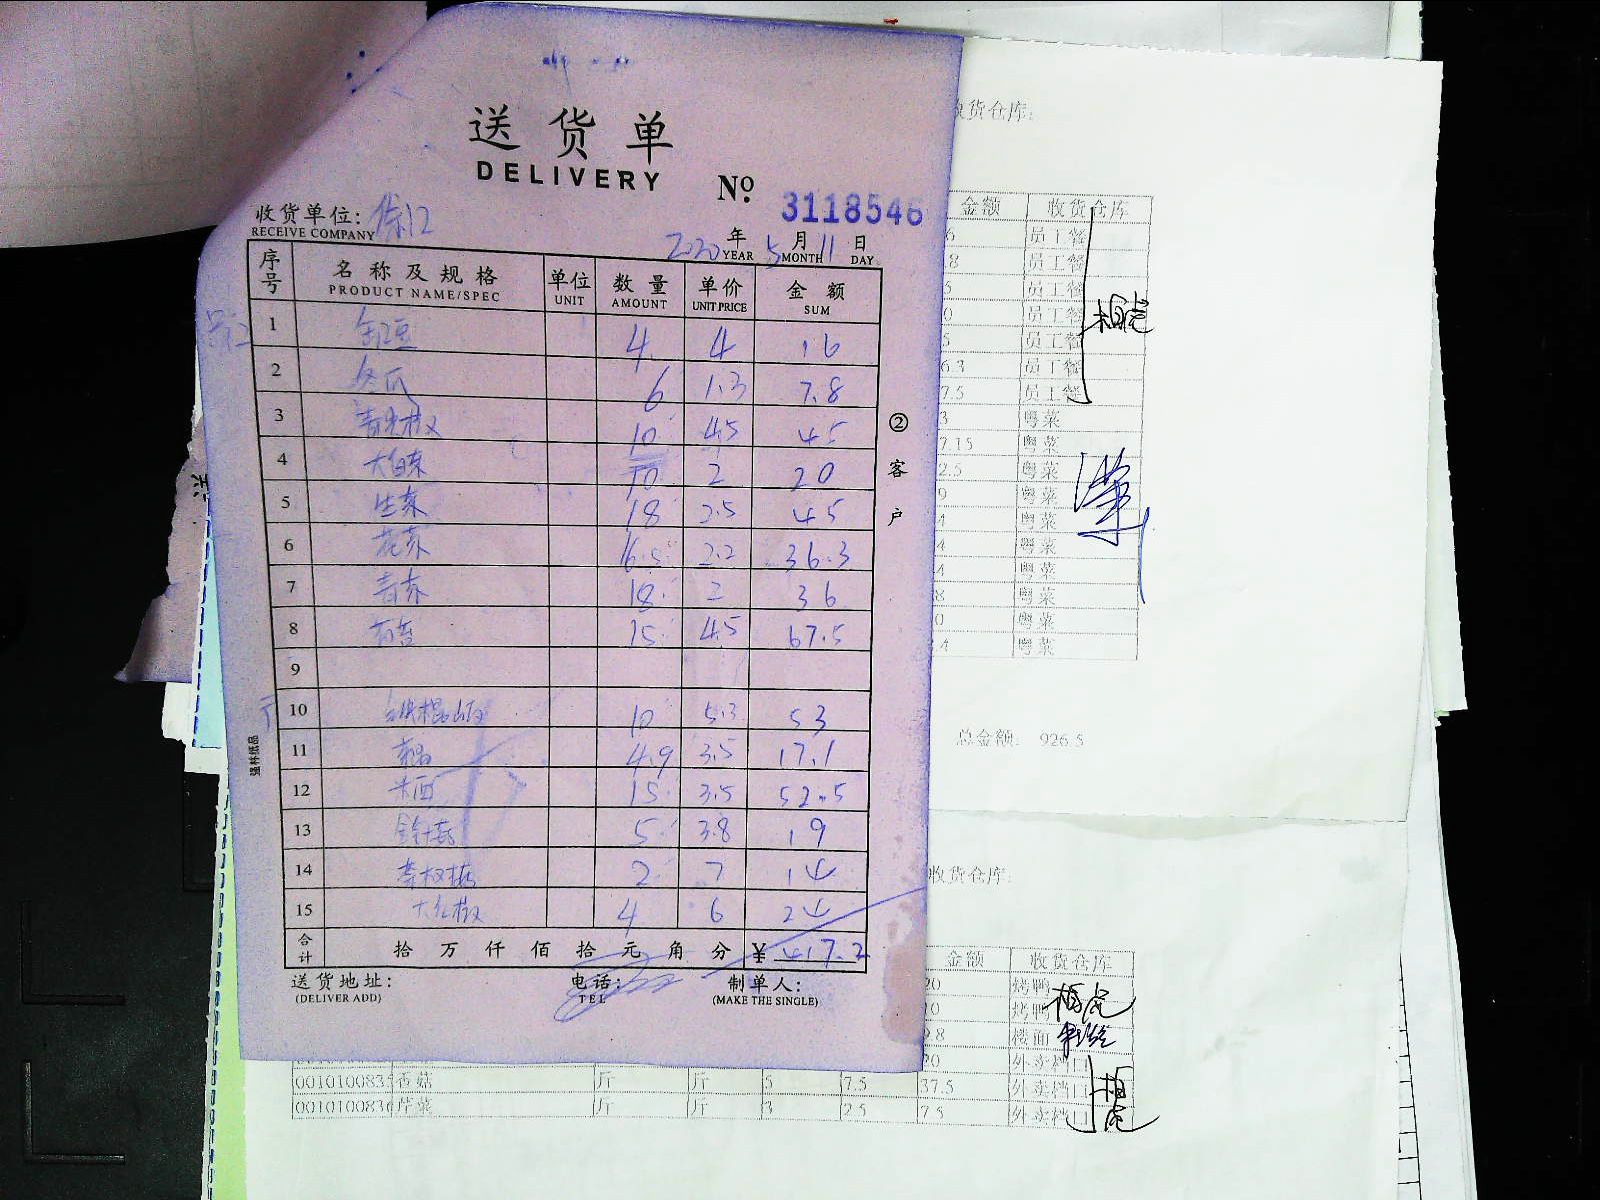 送货单
DELIVERY
№: 3118546
收货单位:
RECEIVE COMPANY
2020年 5月 11日
YEAR MONTH DAY
序号 名称及规格 单位 数量 单价 金额
PRODUCT NAME/SPEC UNIT AMOUNT UNIT PRICE SUM
1 4 4 16
2 冬瓜 6 1.3 7.8
3 青尖椒 10 4.5 45
4 大白菜 10 2 20
5 生菜 18 2.5 45
6 花菜 16.5 2.2 36.3
7 青菜 18 2 36
8 15 4.5 67.5
9
10 铁棍山药 10 5.3 53
11 4.9 3.5 17.1
12 15 3.5 52.5
13 5 3.8 19
14 2 7 14
15 大红椒 4 6 24
合计 拾万仟佰拾元角分 ¥ 417.2
送货地址: 电话: 制单人:
(DELIVER ADD) TEL (MAKE THE SINGLE)
②客户
强林纸品
收货仓库:
金额 收货仓库
6 员工餐
8 员工餐
5 员工餐
0 员工餐
5 员工餐
6.3 员工餐
7.5 员工餐
3 粤菜
7.15 粤菜
2.5 粤菜
9 粤菜
4 粤菜
4 粤菜
4 粤菜
8 粤菜
0 粤菜
.4 粤菜
总金额: 926.5
收货仓库:
金额 收货仓库
20 烤鸭
10 烤鸭
9.8 楼面
20 外卖档口
0010100835 香菇 斤 斤 5 7.5 37.5 外卖档口
0010100836 芹菜 斤 斤 3 2.5 7.5 外卖档口